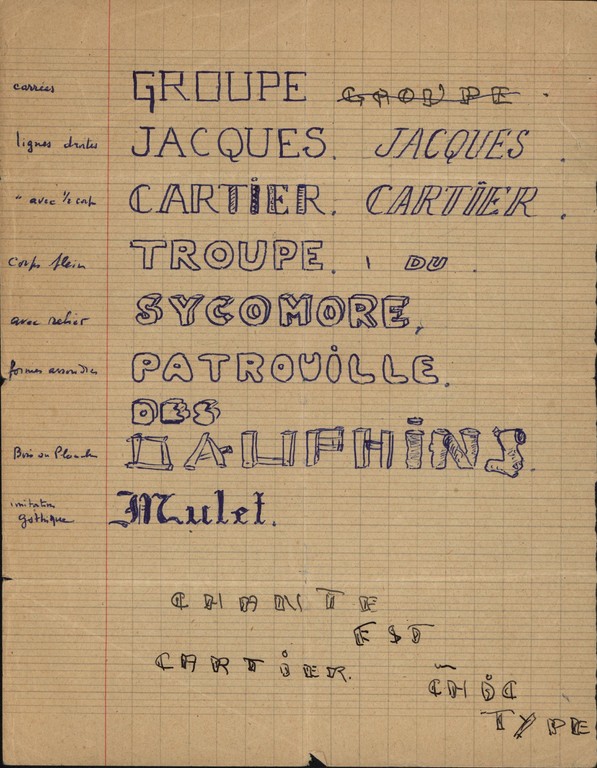 carrées GROUPE GROUPE
lignes droites JACQUES. JACQUES.
" avec ½ corps CARTiER. CARTiER.
corps plein TROUPE. DU.
avec relief SYCOMORE,
formes arrondies PATROUiLLE.
DES
Bois ou Planches DAUPHiNS.
imitation
gothique Mulet.
CHANTE
EST
CARTiER.
CHiC
TYPE